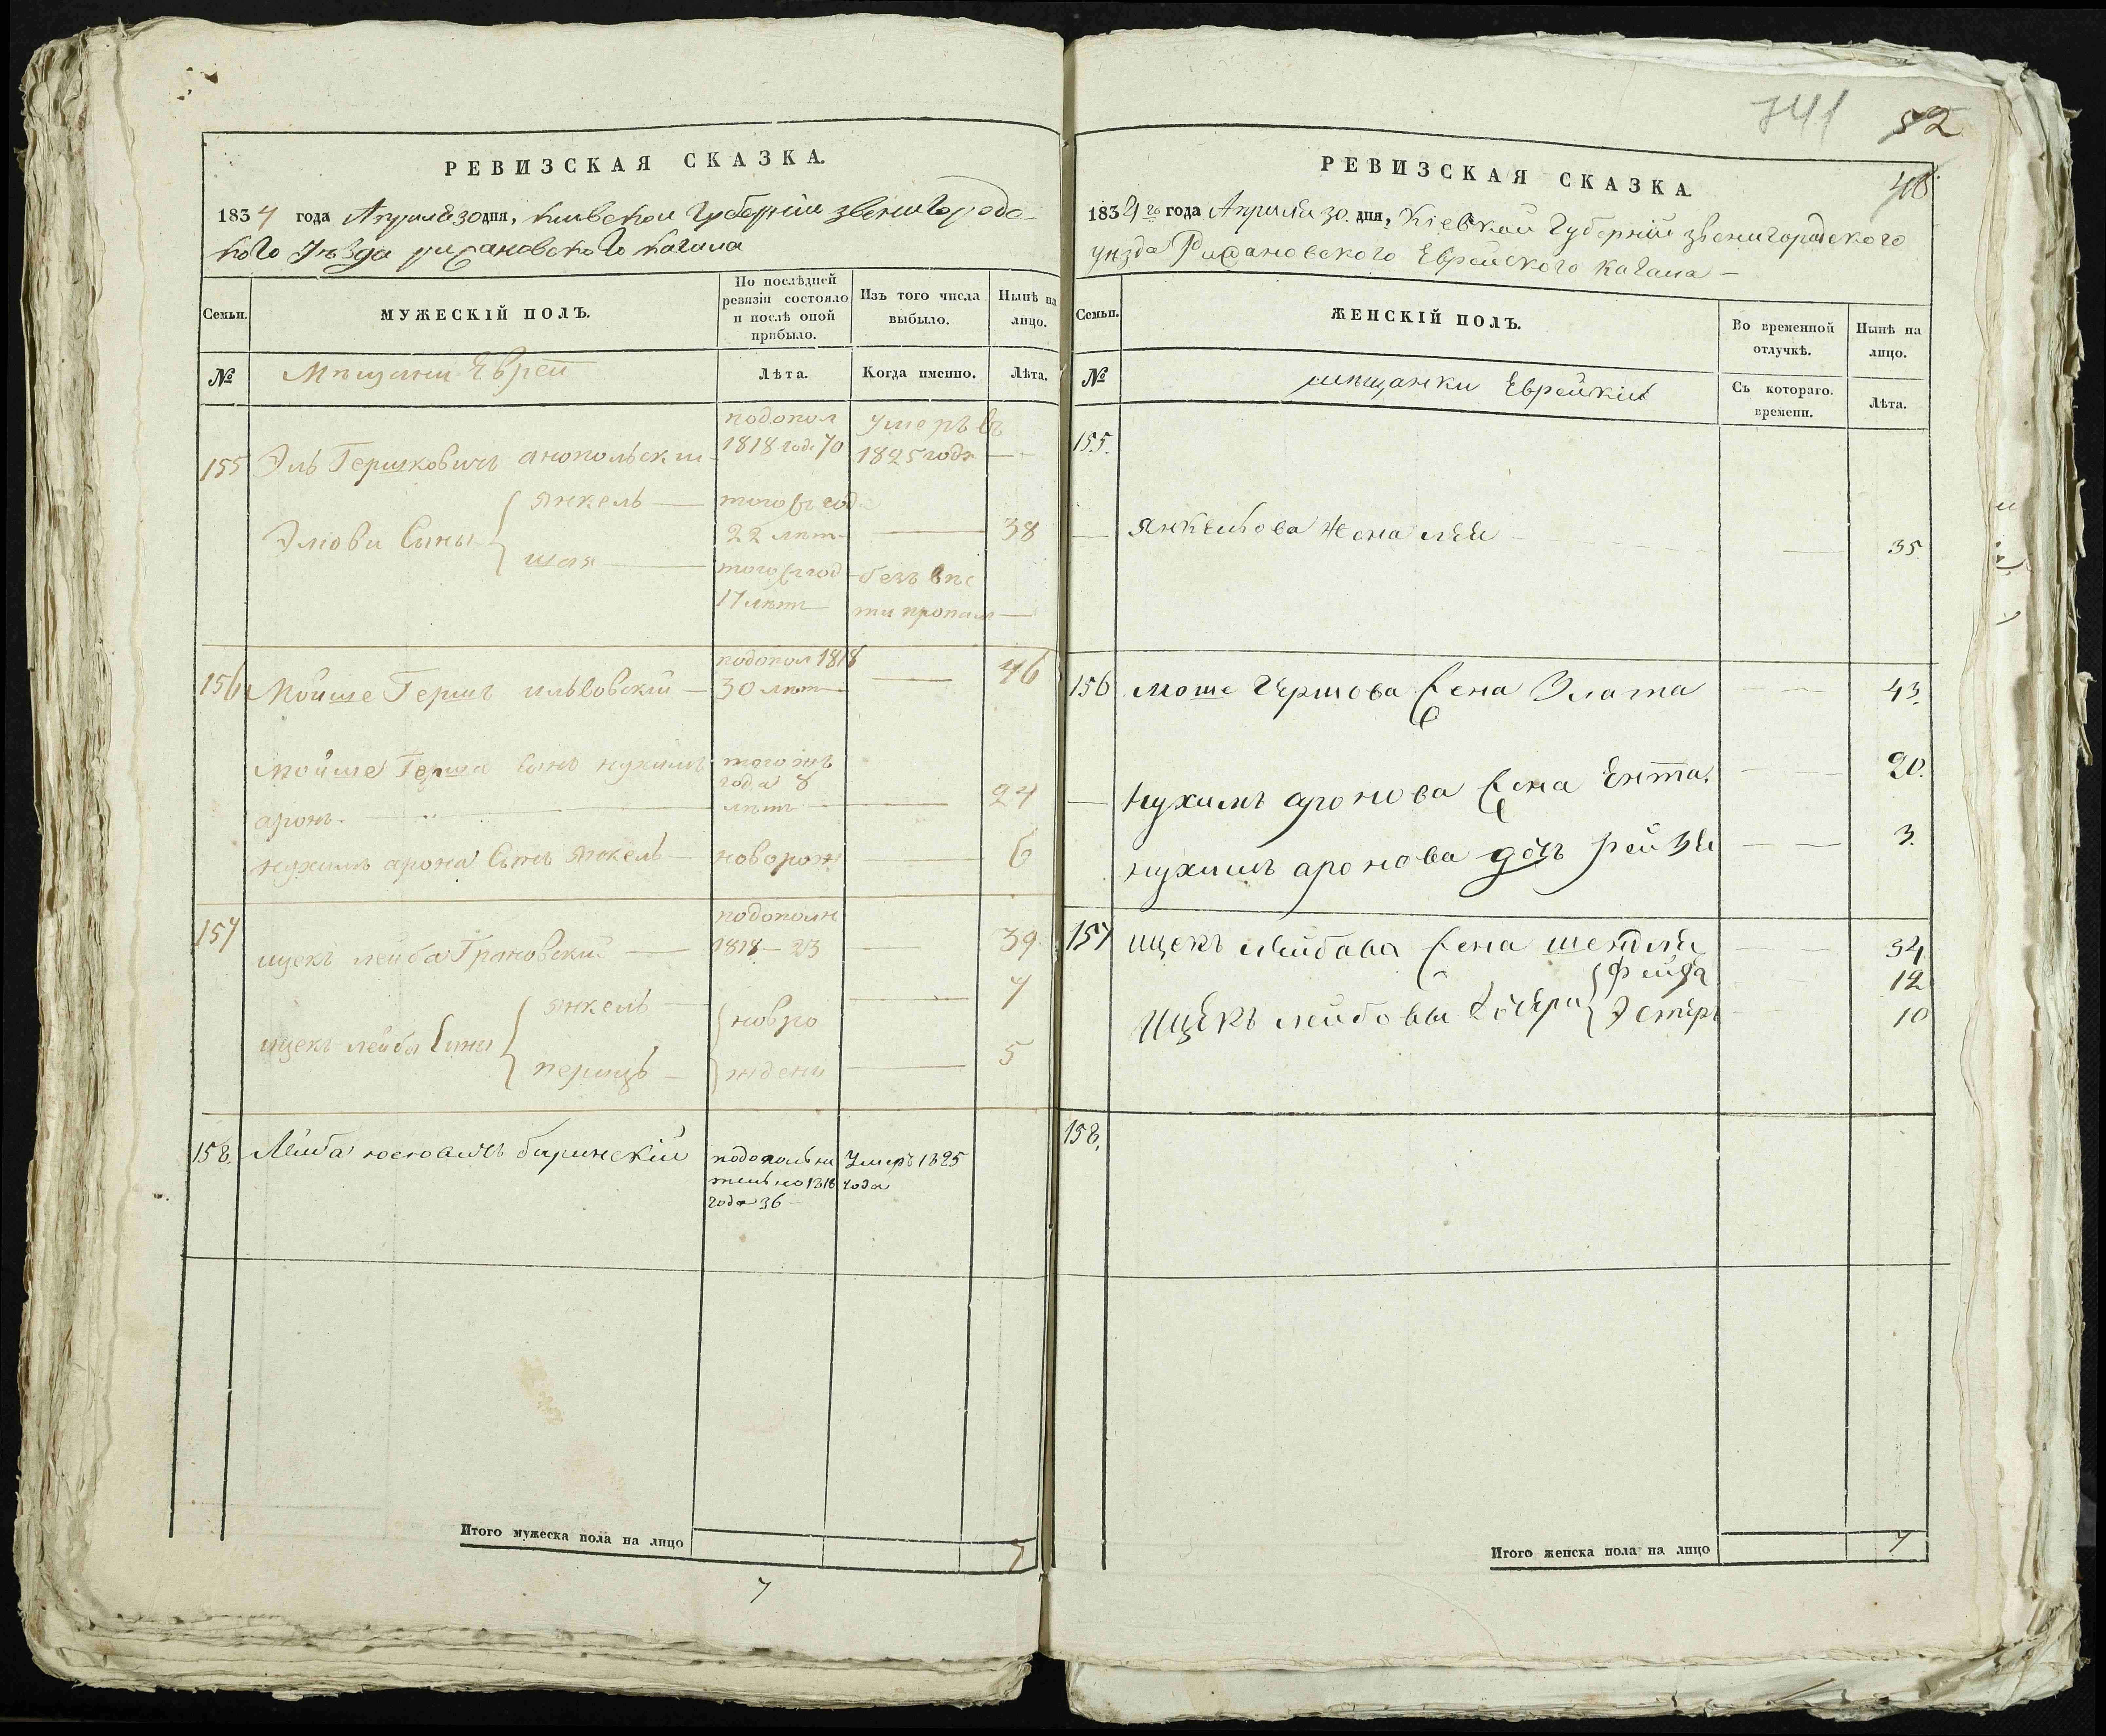 РЕВИЗСКАЯ СКАЗКА.
1834 года Апреля 30 дня, Киевской Губернии Звенигородс-
кого уѣзда рижановского кагала
Семьи.
МУЖЕСКІЙ ПОЛЪ.
По послѣдней ревизіи состояло и послѣ оной прибыло.
Изъ того числа выбыло.
Нынѣ на лицо.
№
Мещани Евреи
Лѣта.
Когда именно.
Лѣта.
155 Эль Гершковичъ анопольскии
подопол 1818 года 70
умеръ въ 1825 года
Элови Сыны
янкель
того ж год 22 лѣт
38
шая
того ж год 17 лѣт
безъ вѣс ти пропалъ
156 Мойше Гершъ ильвовскій
подопол 1818 30 лѣт
46
Мойше Герша сынъ нухимъ
аронъ
того жъ года 8 лѣтъ
24
нухимъ арона Сынъ янкель
новорож
6
157
ицекъ лейба Грановский
подополн 1818 - 23
39
ицекъ лейба Сины
янкель
7
перицъ
новро ждени
5
158. Лейба юсювичъ баринскій
подополни тельно 1818 года 36
умеръ 1825 года
Итого мужеска пола на лицо
7
7
741
52
РЕВИЗСКАЯ СКАЗКА.
1834 го года Апреля 30. дня, Кіевкой Губерній звенигородского
уѣзда Рижановского Еврейского Кагала
Семьи.
ЖЕНСКІЙ ПОЛЪ.
Во временной отлучкѣ.
Нынѣ на лицо.
№
мѣщанки Еврейкіи
Съ котораго. времени.
Лѣта.
155.
янкельова жена лея
35
156 моше гершова жена Злата
43.
нухимъ аронова жена Ента.
20.
нухимъ аронова дочъ рейзя
3.
157 ицекъ лейбова жена шендля
34
Ицекъ лейбовы дочери
Фейга
12
Эстеръ
10
158.
Итого женска пола на лицо
7